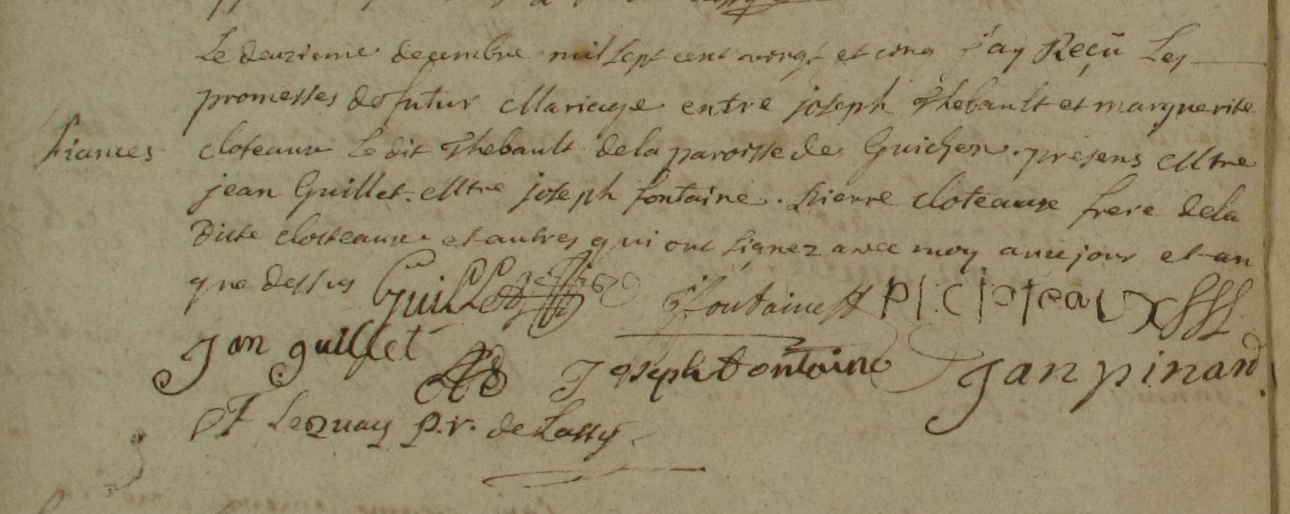 Le deuzieme decembre mil sept cent vingt et cinq j'ay Reçu Les
promesses de futur Mariage entre joseph Thebault et marguerite
fiances
cloteaux Le dit Thebault de la paroisse de Guichen. presens Mtre
jean Guillet. Mtre joseph fontaine. pierre cloteaux frere de la
Ditte closteaux et autres qui ont signez avec moy ause jour et an
que dessus Guillet fontaine p cloteaux
Jan guillet Joseph fontaine Jan pinard
F Lequay p.r. de Lassy